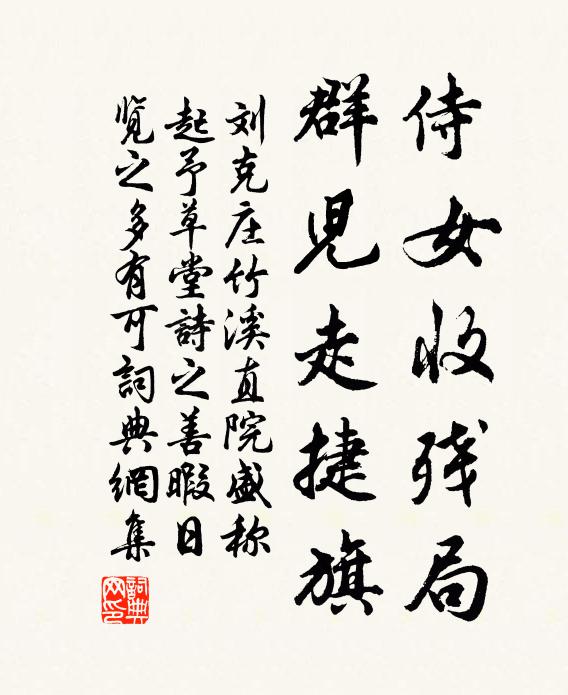 侍女收残局
群児走捷旗
刘克庄竹溪直院盛称
起予草堂詩之善暇日
覧之多有可詞典網集
詞典
网印